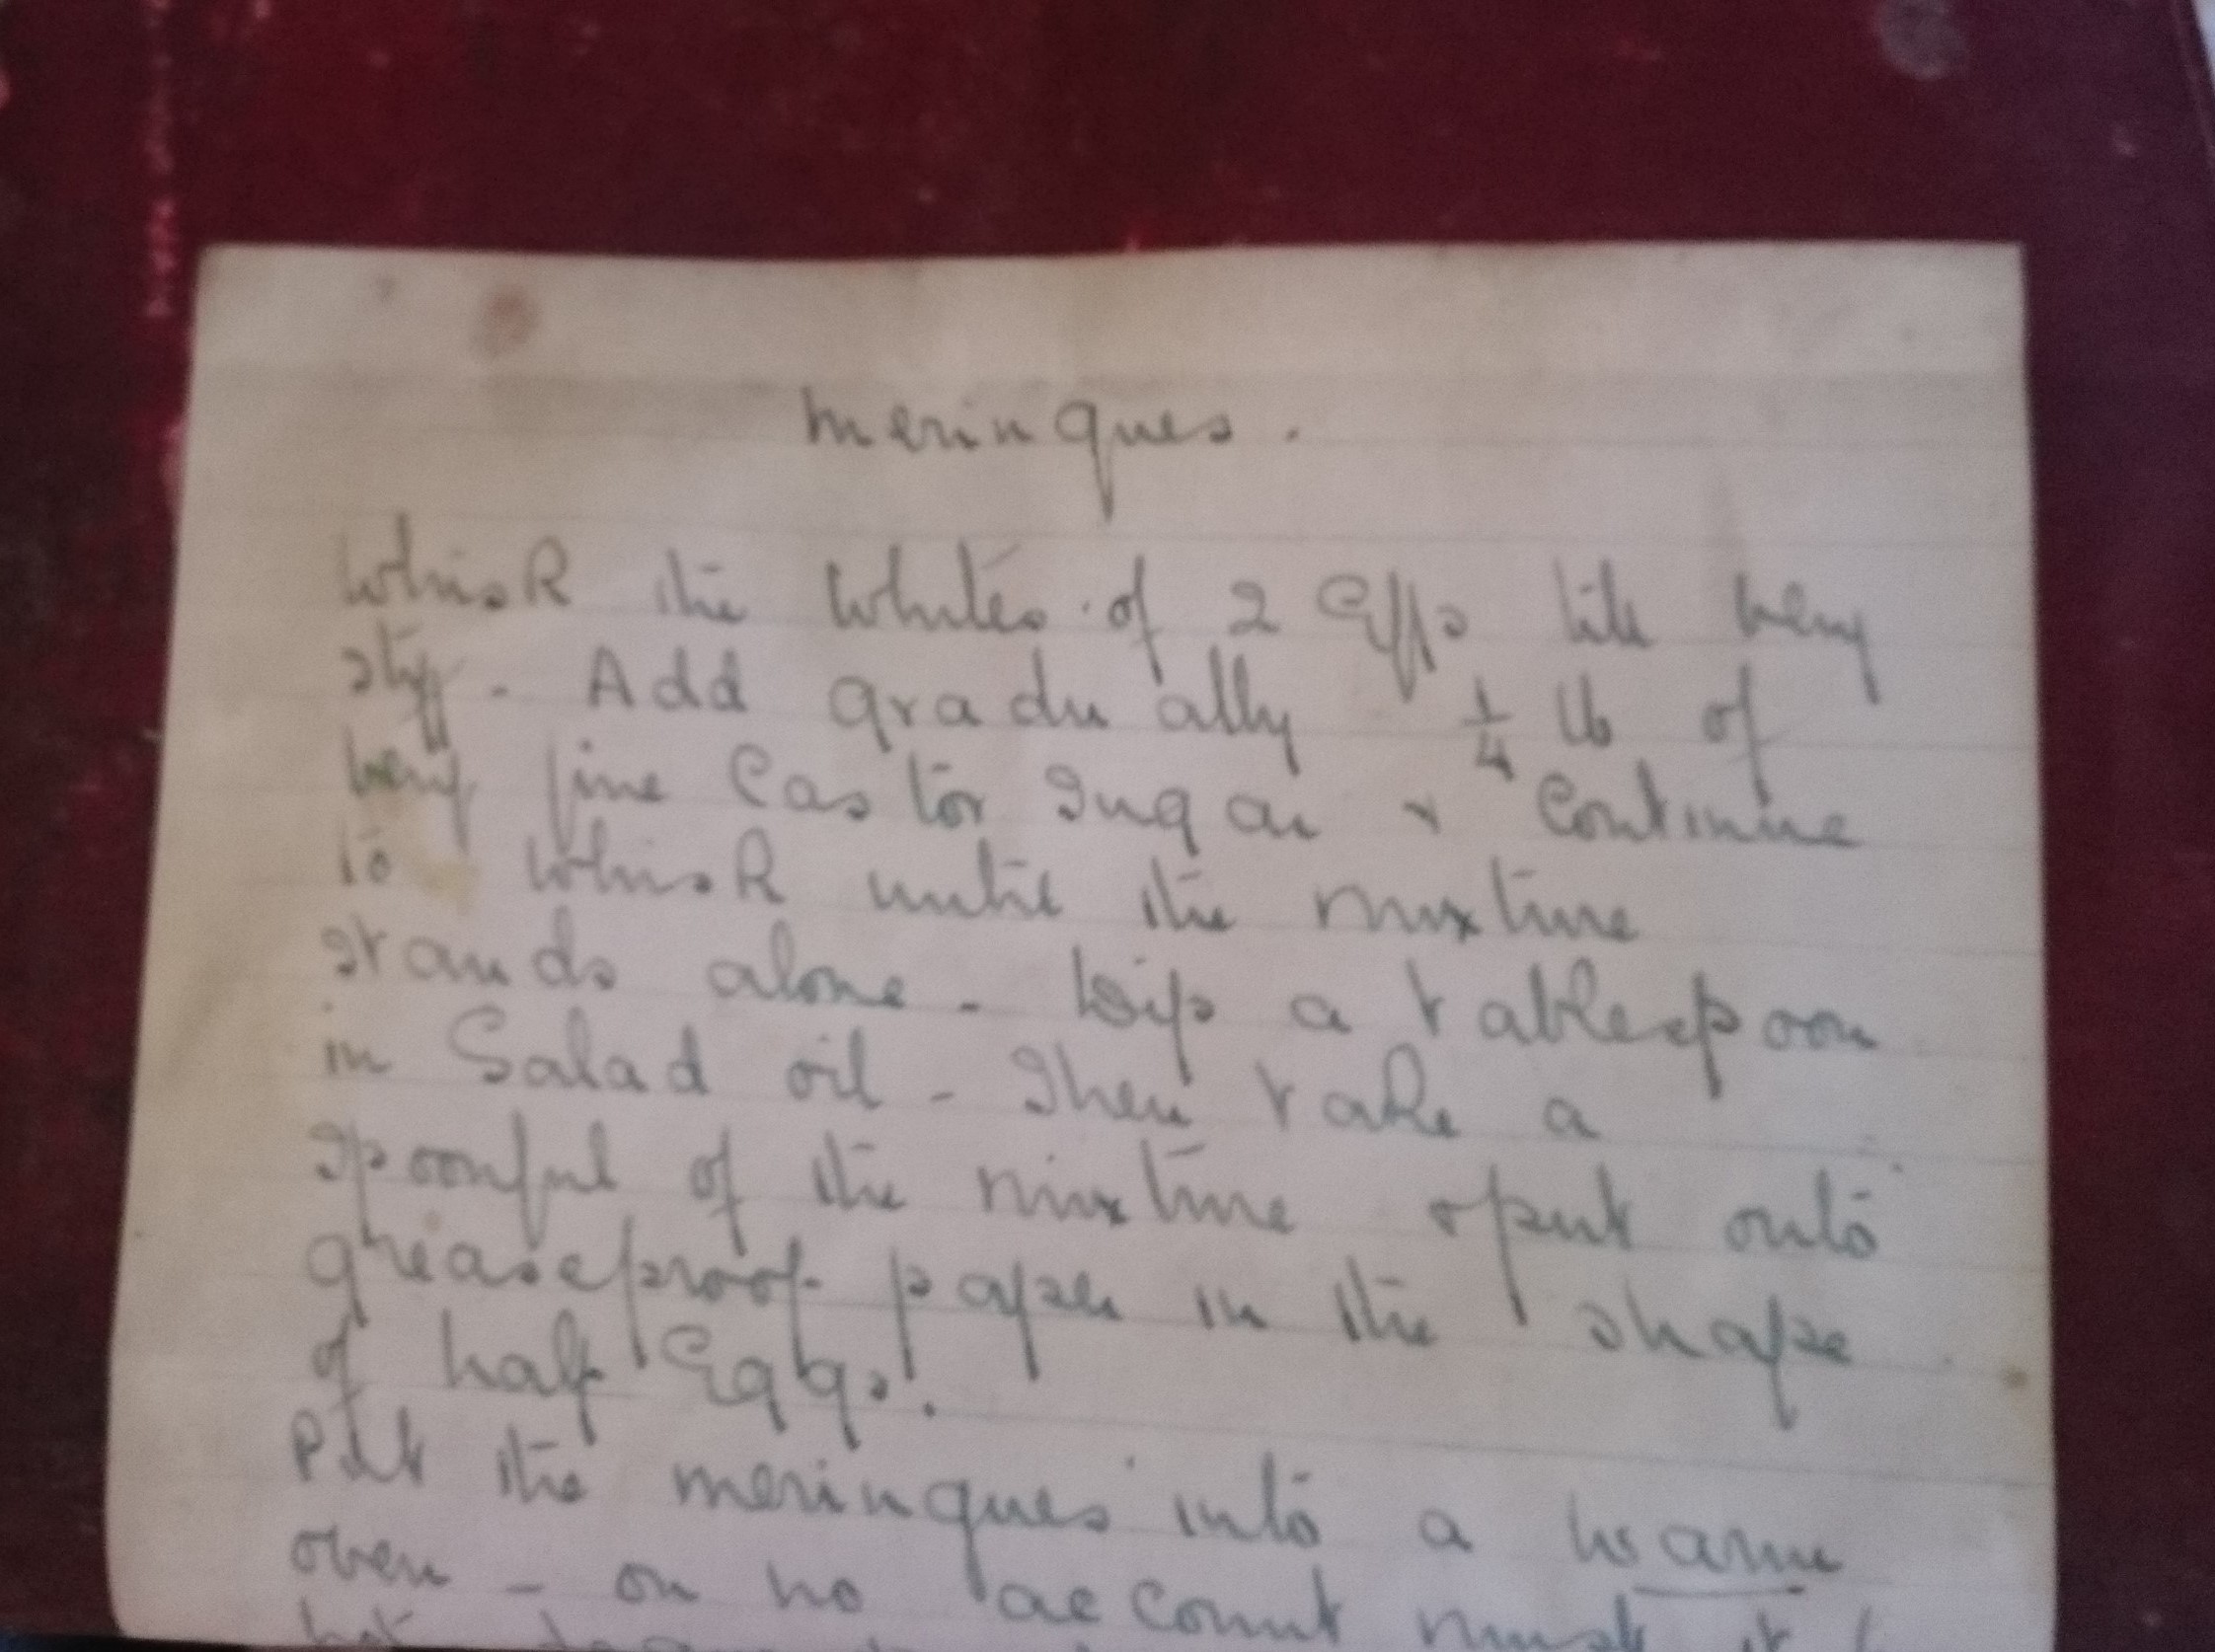 Meringues.
Whisk the whites of 2 Eggs till very
stiff - Add gradually 1/4 lb of
very fine Castor Sugar & Continue
to whisk until the mixture
stands alone - Dip a tablespoon
in Salad oil - Then take a
spoonful of the mixture & put onto
greaseproof paper in the shape
of half Eggs.
Put the meringues into a warm
oven - on no account must it
hot